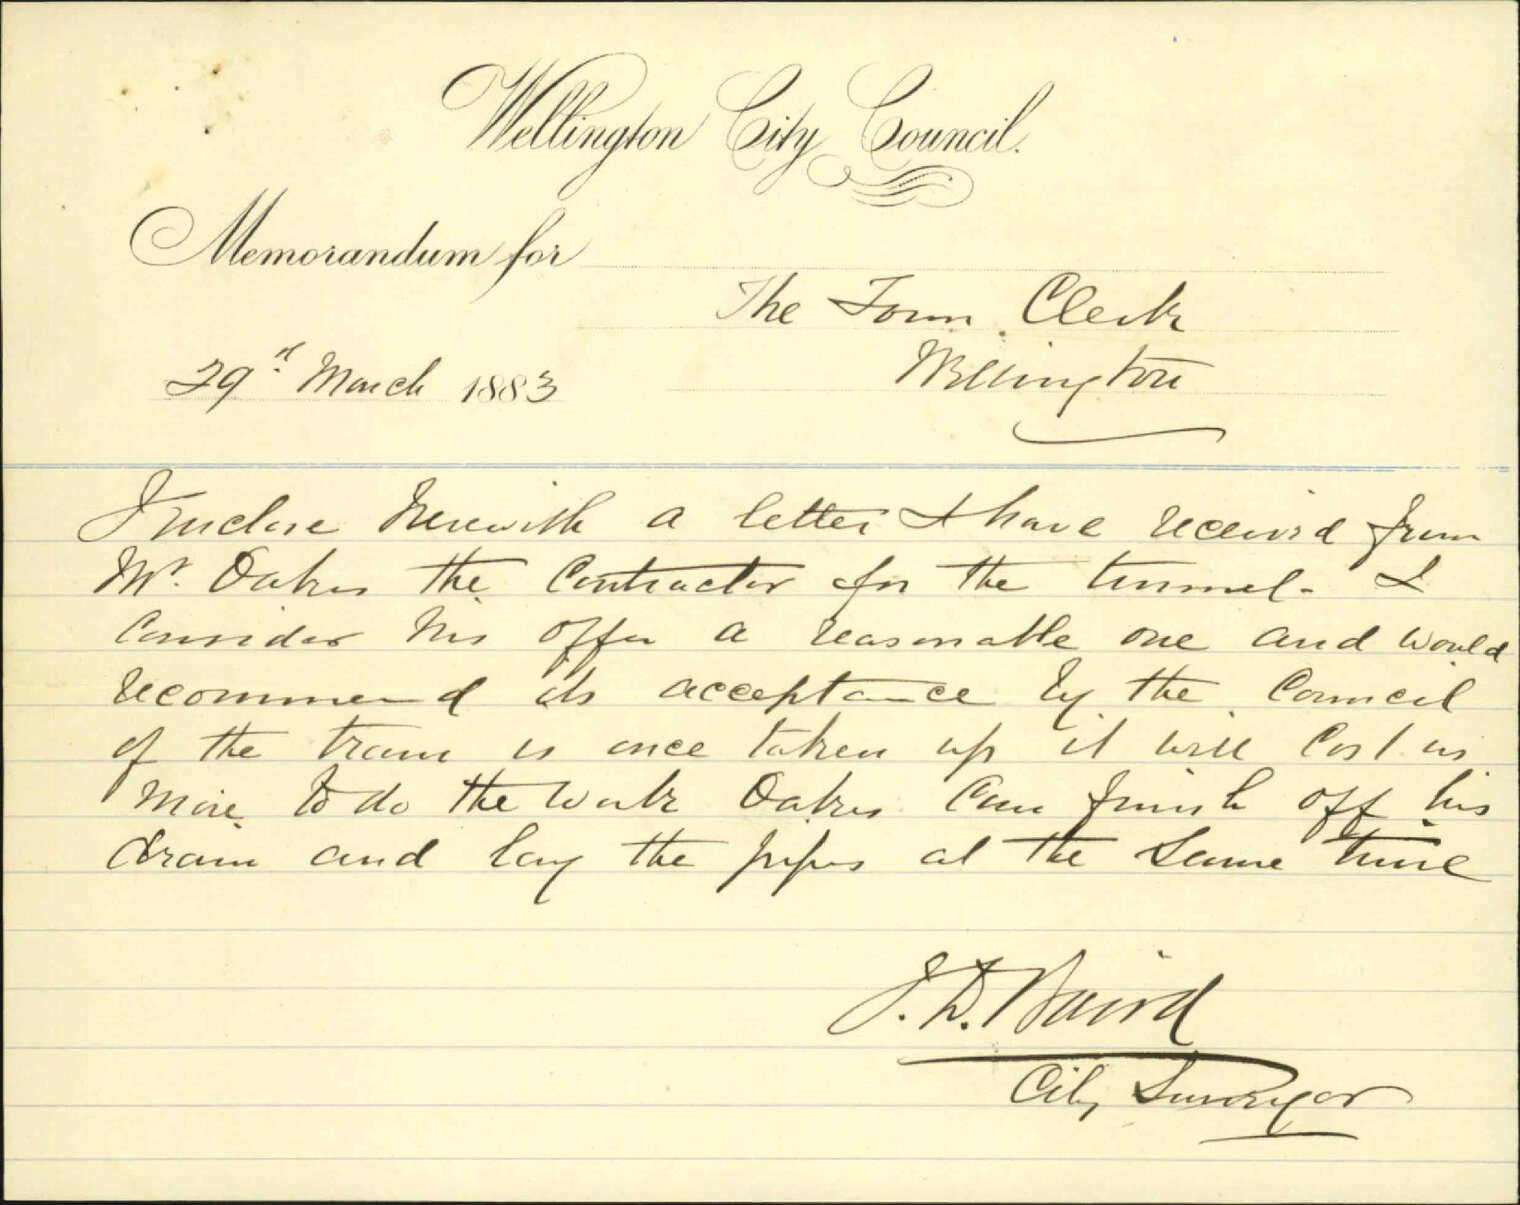 Wellington City Council.
Memorandum for
The Town Clerk
Wellington
29th March 1883
I enclose herewith a letter I have received from
Mr. Oakes the Contractor for the tunnel. I
Consider his offer a reasonable one and would
recommend its acceptance by the Council
if the tram is once taken up it will Cost us
more to do the work Oakes Can finish off his
drain and lay the pipes at the same time
J. D. Baird
City Surveyor